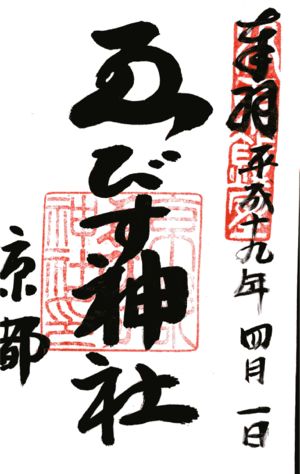 奉拝 平成十九年 四月一日
ゑびす神社
京都